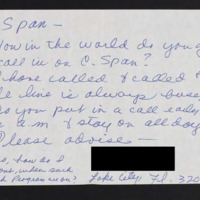 Span —
How in the world do you g
call in on C. Span?
have called & called &
e line is always busy
Do you put in a call early
a.m & stay on all day
Please advise —
so, how do I
when each
Program on?
Lake City, Fl. 320